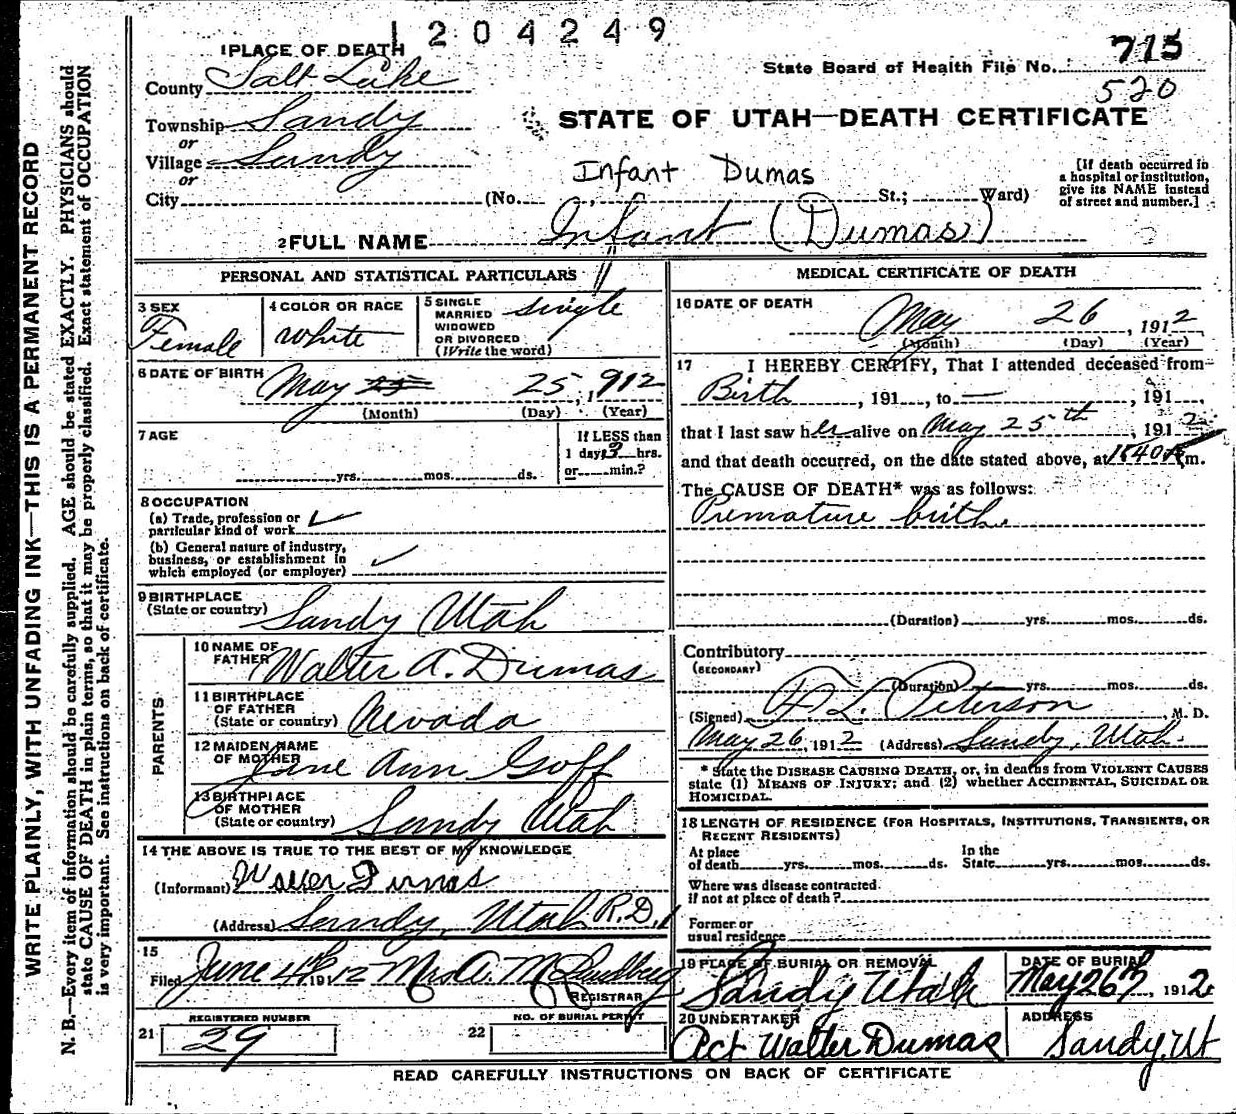 1204249
1 PLACE OF DEATH
County Salt Lake
Township Sandy
or
Village Sandy
or
City (No. St.; Ward)
State Board of Health File No. 715
520
STATE OF UTAH—DEATH CERTIFICATE
Infant Dumas
[If death occurred in
a hospital or institution,
give its NAME instead
of street and number.]
2 FULL NAME Infant (Dumas)
PERSONAL AND STATISTICAL PARTICULARS
3 SEX
Female
4 COLOR OR RACE
White
5 SINGLE
MARRIED
WIDOWED
OR DIVORCED
(Write the word)
single
6 DATE OF BIRTH May 25 25, 1912
(Month) (Day) (Year)
7 AGE
yrs. mos. ds.
If LESS than
1 day, 3 hrs.
or min.?
8 OCCUPATION
(a) Trade, profession or
particular kind of work
(b) General nature of industry,
business, or establishment in
which employed (or employer)
9 BIRTHPLACE
(State or country) Sandy Utah
PARENTS
10 NAME OF
FATHER Walter A. Dumas
11 BIRTHPLACE
OF FATHER
(State or country) Nevada
12 MAIDEN NAME
OF MOTHER Jane Ann Goff
13 BIRTHPLACE
OF MOTHER
(State or country) Sandy Utah
14 THE ABOVE IS TRUE TO THE BEST OF MY KNOWLEDGE
(Informant) Walter Dumas
(Address) Sandy, Utah R.D.1
15
Filed June 4th 1912 Mrs. A. M. Lundberg
REGISTRAR
21 REGISTERED NUMBER
29
22 NO. OF BURIAL PERMIT
MEDICAL CERTIFICATE OF DEATH
16 DATE OF DEATH
May 26, 1912
(Month) (Day) (Year)
17 I HEREBY CERTIFY, That I attended deceased from
Birth, 191, to —, 191,
that I last saw her alive on May 25th, 1912
and that death occurred, on the date stated above, at m.
The CAUSE OF DEATH* was as follows:
Premature birth.
(Duration) yrs. mos. ds.
Contributory
(SECONDARY)
(Duration) yrs. mos. ds.
(Signed) Peterson, M. D.
May 26, 1912 (Address) Sandy, Utah.
* State the DISEASE CAUSING DEATH, or, in deaths from VIOLENT CAUSES
state (1) MEANS OF INJURY; and (2) whether ACCIDENTAL, SUICIDAL OR
HOMICIDAL.
18 LENGTH OF RESIDENCE (FOR HOSPITALS, INSTITUTIONS, TRANSIENTS, OR
RECENT RESIDENTS)
At place
of death yrs. mos. ds.
In the
State yrs. mos. ds.
Where was disease contracted
if not at place of death?
Former or
usual residence
19 PLACE OF BURIAL OR REMOVAL
Sandy Utah
DATE OF BURIAL
May 26th, 1912
20 UNDERTAKER
Act Walter Dumas
ADDRESS
Sandy, Ut
READ CAREFULLY INSTRUCTIONS ON BACK OF CERTIFICATE
WRITE PLAINLY, WITH UNFADING INK—THIS IS A PERMANENT RECORD
N. B.—Every item of information should be carefully supplied. AGE should be stated EXACTLY. PHYSICIANS should
state CAUSE OF DEATH in plain terms, so that it may be properly classified. Exact statement of OCCUPATION
is very important. See instructions on back of certificate.